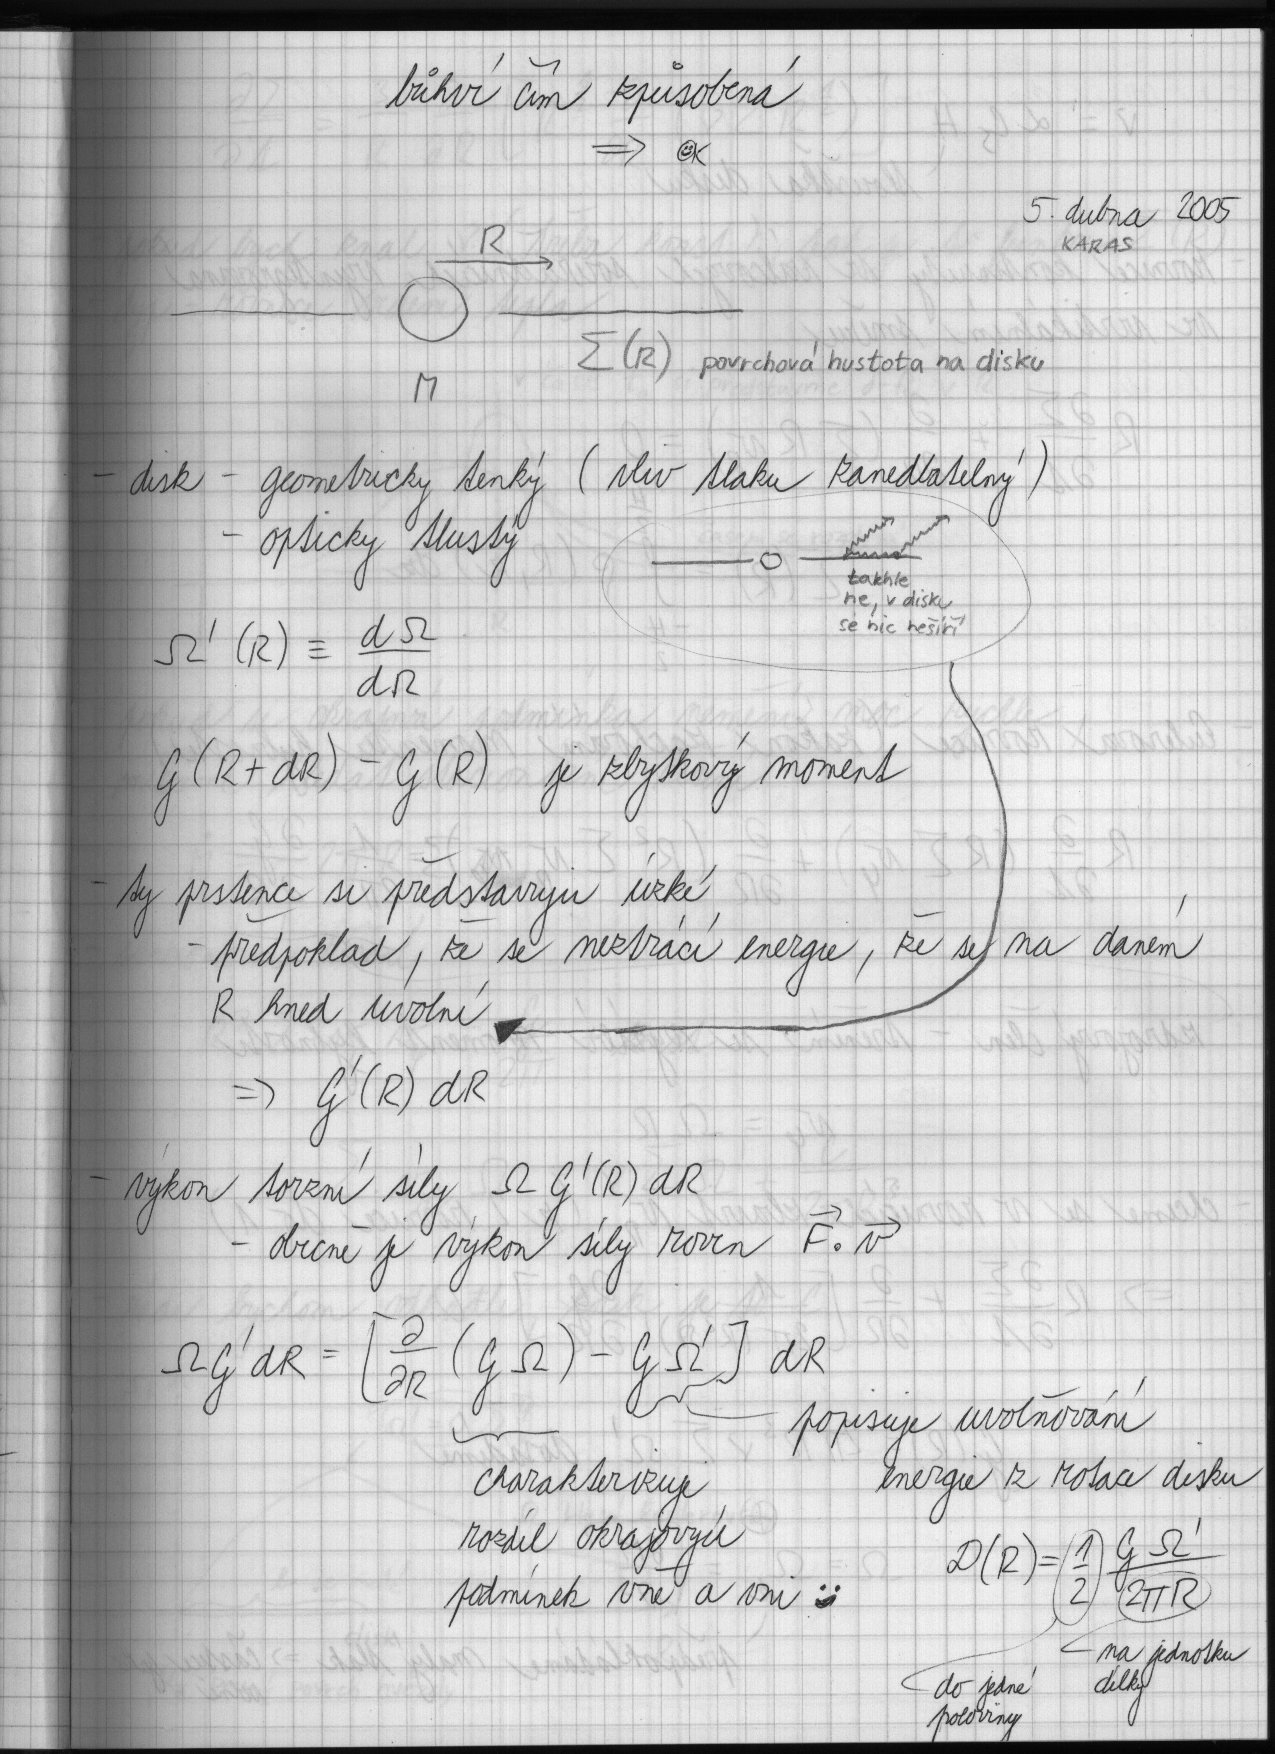 bůhví čím způsobená
⇒ OK
5. dubna 2005
KARAS
R
Σ(R) povrchová hustota na disku
M
- disk - geometricky tenký (vliv tlaku zanedbatelný)
- opticky tlustý
takhle
ne, v disku
se nic nešíří
Ω'(R) ≡ dΩ/dR
G(R+dR) - G(R) je zbytkový moment
- ty prstence si představuju úzké
- předpoklad, že se neztrácí energie, že se na daném
R hned uvolní
⇒ G'(R) dR
- výkon torzní síly Ω G'(R) dR
- obecně je výkon síly roven F⃗ . v⃗
Ω G' dR = [∂/∂R (G Ω) - G Ω'] dR
popisuje uvolňování
energie z rotace disku
charakterizuje
rozdíl okrajových
podmínek vně a vni
D(R) = 1/2 G Ω'/2πR
na jednotku
délky
do jedné
poloviny